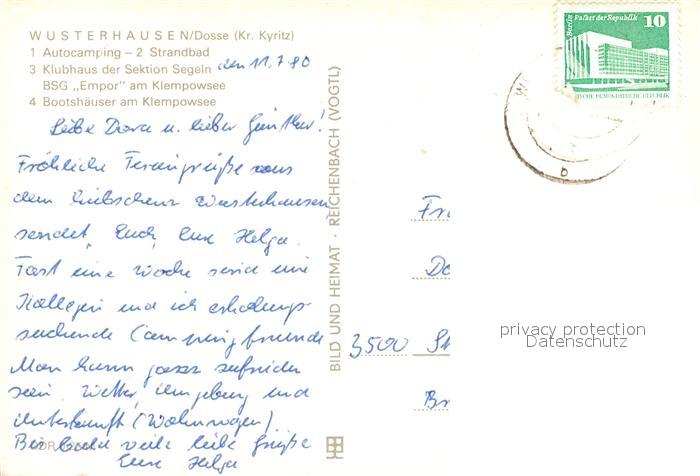 WUSTERHAUSEN/Dosse (Kr. Kyritz)
1 Autocamping – 2 Strandbad
3 Klubhaus der Sektion Segeln
BSG „Empor" am Klempowsee
4 Bootshäuser am Klempowsee
den 11.7.80
Liebe Dora u. lieber Günther!
Fröhliche Feriengrüße aus
dem hübschen Wusterhausen
sendet Euch, Eure Helga.
Fast eine Woche sind eine
Kollegin und ich erholungs-
suchende Campingfreunde
Man kann ganz zufrieden
sein. Wetter, Umgebung und
Unterkunft (Wohnwagen).
Bis bald viele liebe Grüße
Eure Helga
BILD UND HEIMAT · REICHENBACH (VOGTL)
Berlin Palast der Republik 10
DEUTSCHE DEMOKRATISCHE REPUBLIK
Fr
Do
3500 St
Br
privacy protection
Datenschutz